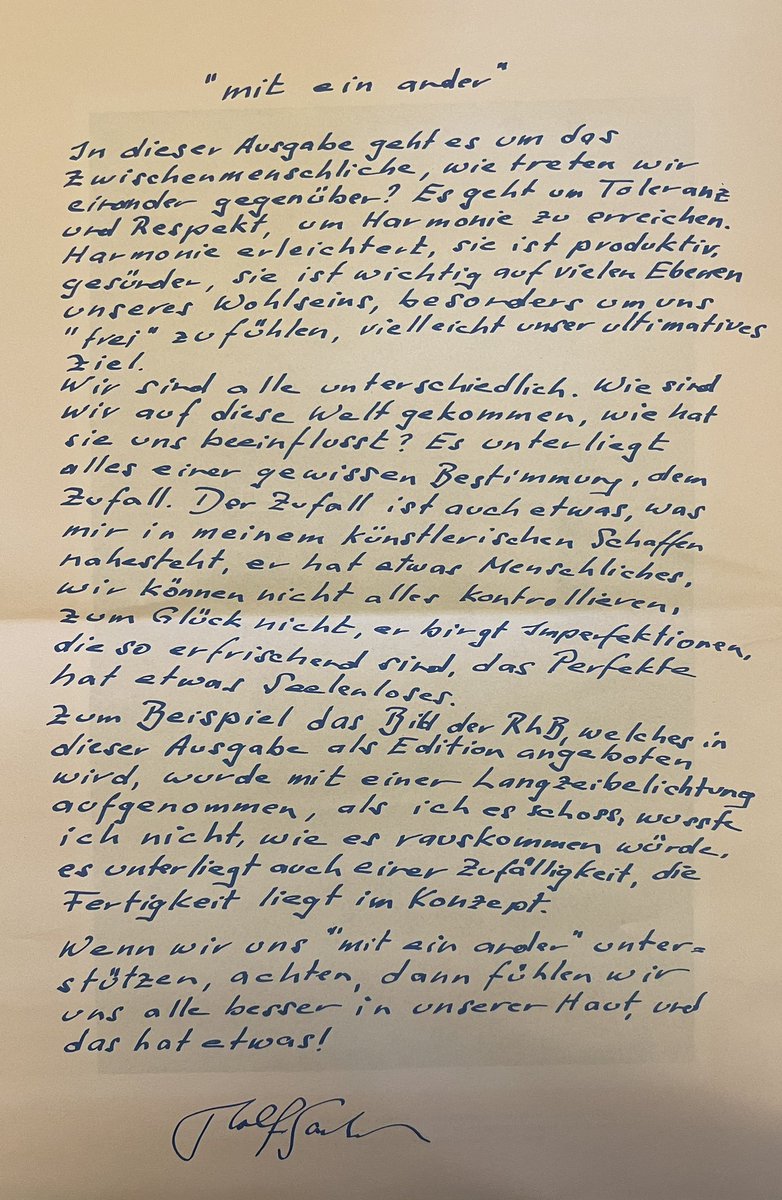 "mit ein ander"
In dieser Ausgabe geht es um das
Zwischenmenschliche, wie treten wir
einander gegenüber? Es geht um Toleranz
und Respekt, um Harmonie zu erreichen.
Harmonie erleichtert, sie ist produktiv,
gesünder, sie ist wichtig auf vielen Ebenen
unseres Wohlseins, besonders um uns
"frei" zu fühlen, vielleicht unser ultimatives
Ziel.
Wir sind alle unterschiedlich. Wie sind
wir auf diese Welt gekommen, wie hat
sie uns beeinflusst? Es unterliegt
alles einer gewissen Bestimmung, dem
Zufall. Der Zufall ist auch etwas, was
mir in meinem künstlerischen Schaffen
nahesteht, er hat etwas Menschliches,
wir können nicht alles kontrollieren,
zum Glück nicht, er birgt Imperfektionen,
die so erfrischend sind, das Perfekte
hat etwas Seelenloses.
Zum Beispiel das Bild der RhB, welches in
dieser Ausgabe als Edition angeboten
wird, wurde mit einer Langzeibelichtung
aufgenommen, als ich es schoss, wusste
ich nicht, wie es rauskommen würde,
es unterliegt auch einer Zufälligkeit, die
Fertigkeit liegt im Konzept.
Wenn wir uns "mit ein ander" unter=
stützen, achten, dann fühlen wir
uns alle besser in unserer Haut, und
das hat etwas!